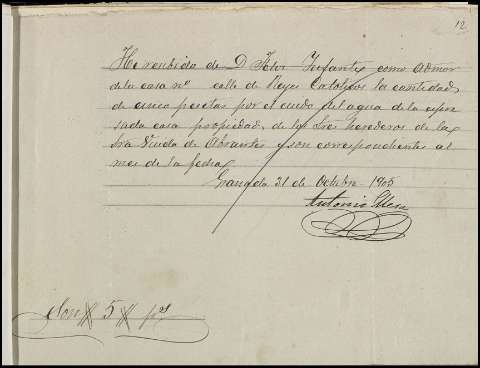 12
He recibido de D. Infantes como admor
de la casa nº calle de Reyes Catolicos la cantidad
de cinco pesetas por el cuido del agua de la expre
sada casa propiedad de los Sres herederos de la
Sra Viuda de Abrantes y son correspondientes al
mes de la fecha
Granada 31 de Octubre 1905
Antonio
Son # 5 # pts